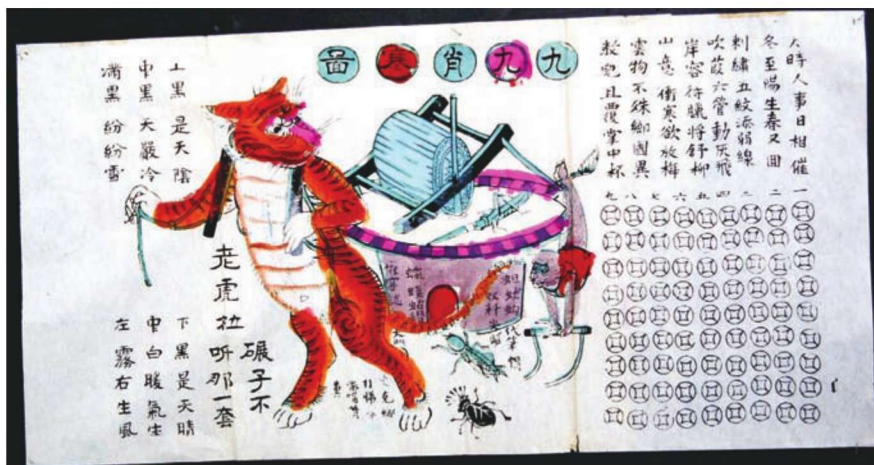 九九肖寒圖
天時人事日相催
冬至陽生春又回
刺繡五紋添弱線
吹葭六管動灰飛
岸容待臘將舒柳
山意衝寒欲放梅
雲物不殊鄉國異
教兒且覆掌中杯
一 二 三 四 五 六 七 八 九
上黑是天陰
中黑天嚴冷
滿黑紛紛雪
下黑是天晴
中白暖氣生
左霧右生風
老虎拉
碾子不
听那一套